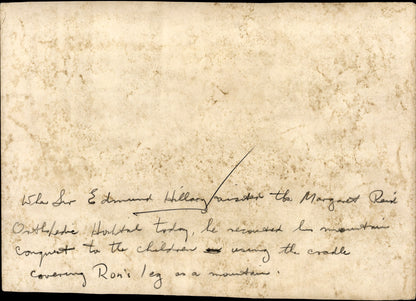 When Sir Edmund Hillary visited the Margaret Reid
Orthopedic Hospital today, he recounted his mountain
conquest to the children using the cradle
covering Ron's leg as a mountain.